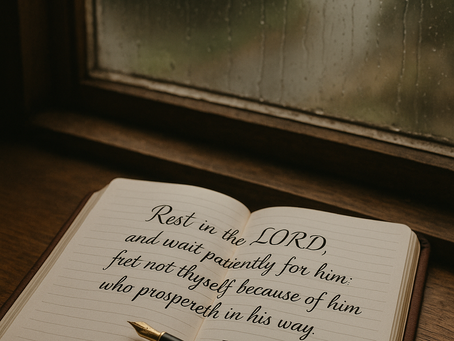 Rest in the LORD,
and wait patiently for him:
fret not thyself because of him
who prospereth in his way.